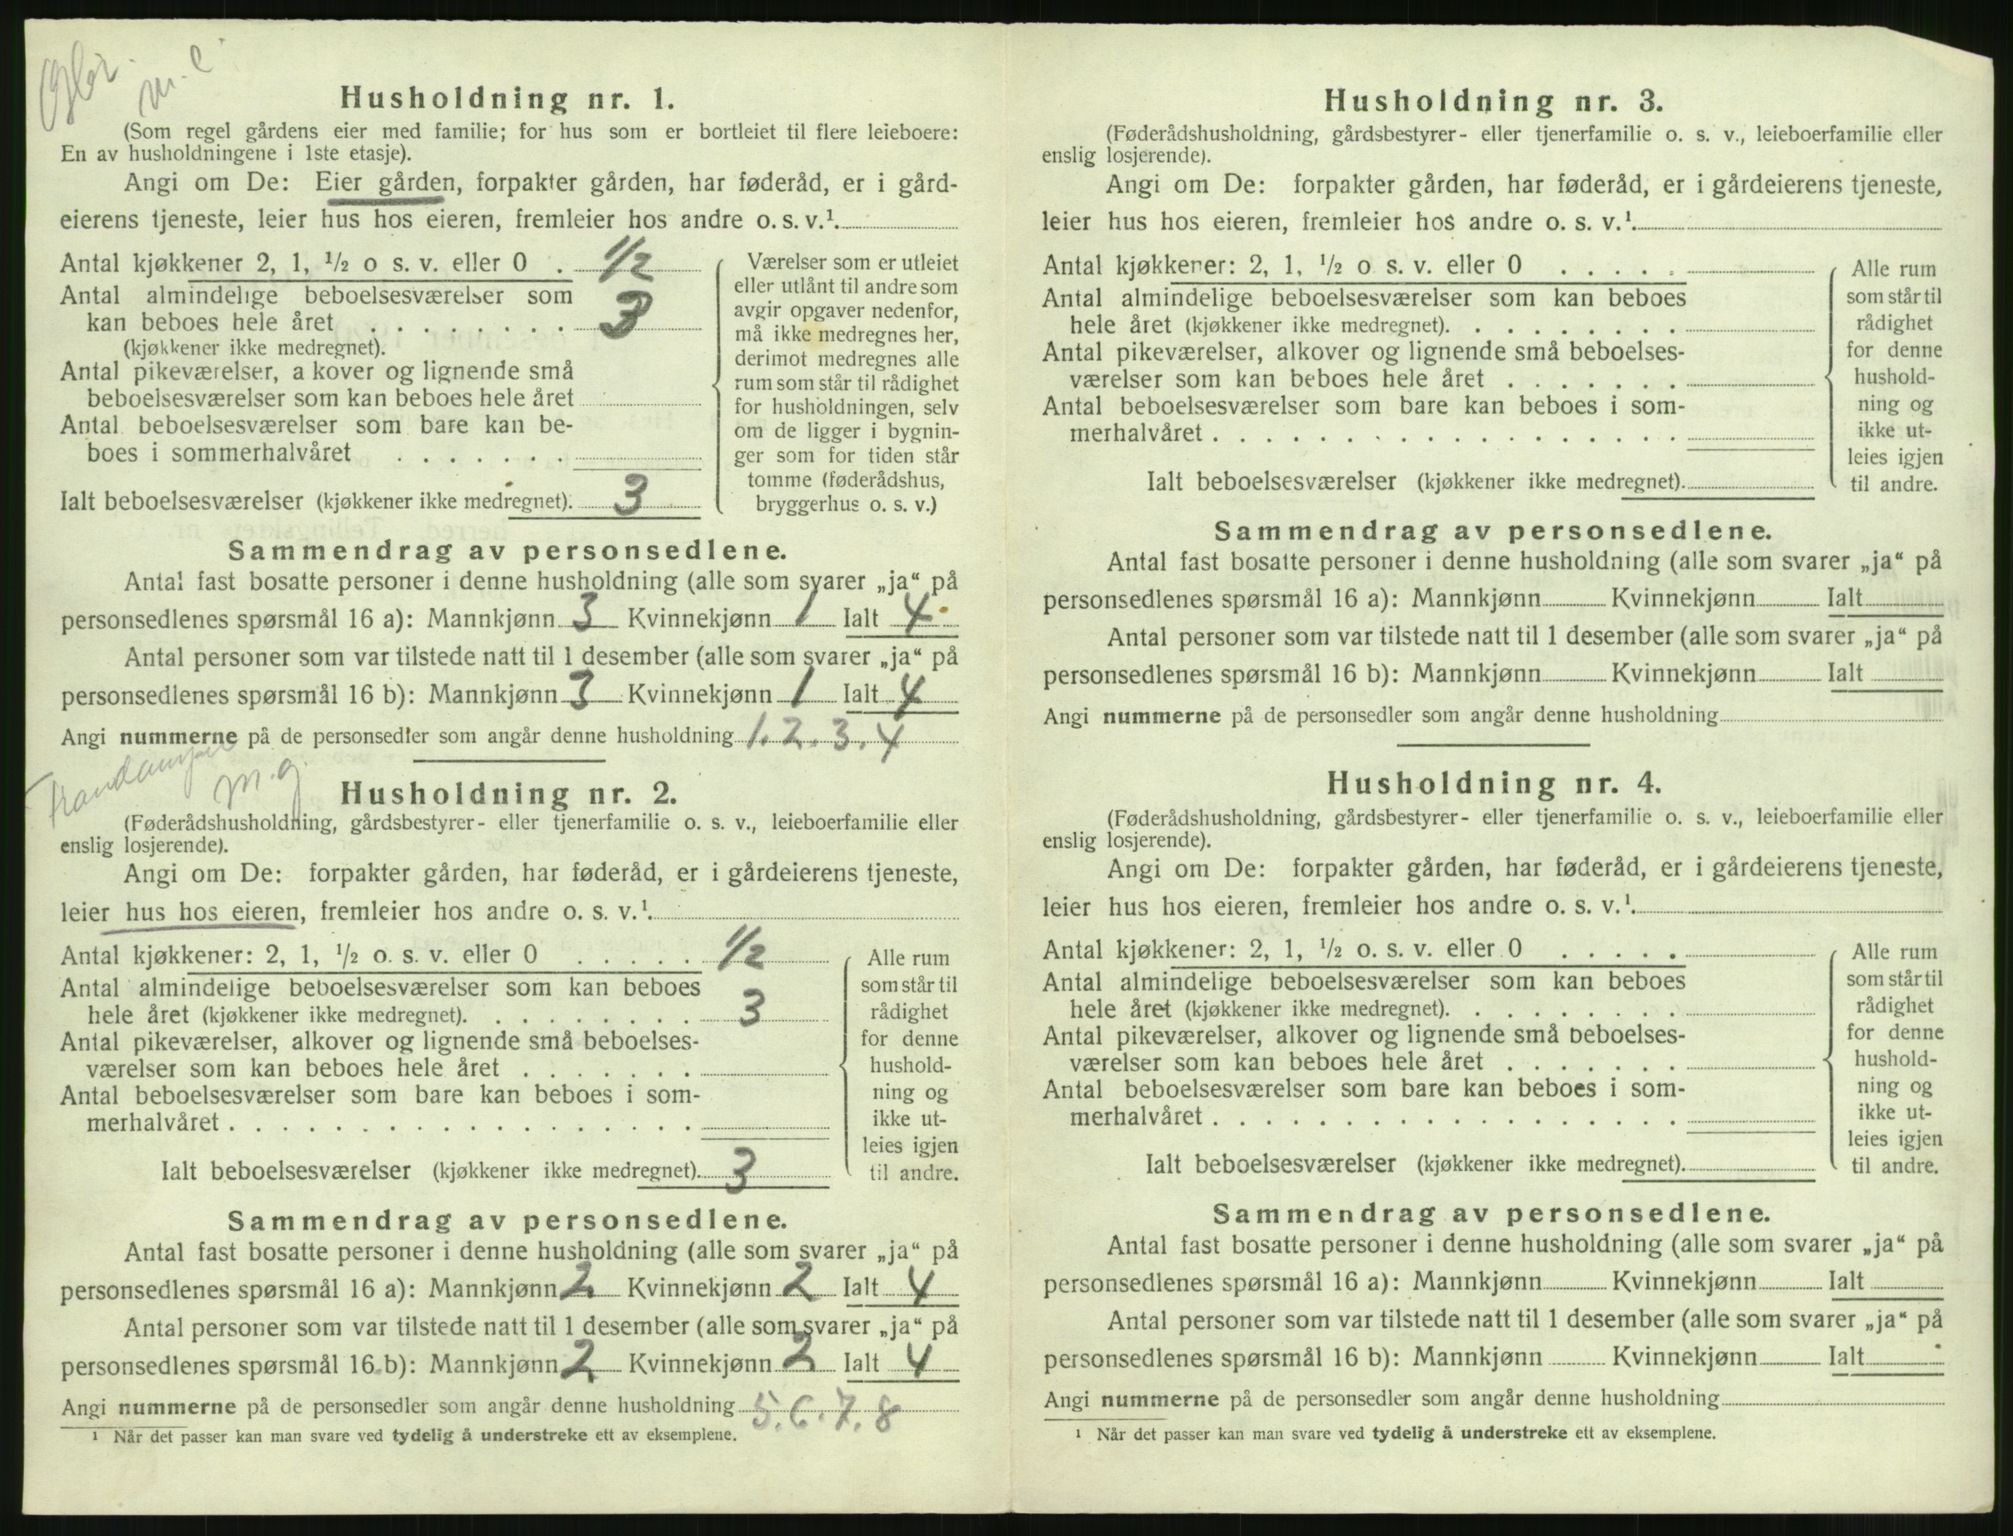 m.c.
Husholdning nr. 1.
(Som regel gårdens eier med familie; for hus som er bortleiet til flere leieboere:
En av husholdningene i 1ste etasje).
Angi om De: Eier gården, forpakter gården, har føderåd, er i gård-
eierens tjeneste, leier hus hos eieren, fremleier hos andre o. s. v.¹
Antal kjøkkener 2, 1, ½ o s. v. eller 0 . 1/2
Antal almindelige beboelsesværelser som
kan beboes hele året . . . . . . . . 3
(kjøkkener ikke medregnet).
Antal pikeværelser, a kover og lignende små
beboelsesværelser som kan beboes hele året
Antal beboelsesværelser som bare kan be-
boes i sommerhalvåret . . . . . . .
Ialt beboelsesværelser (kjøkkener ikke medregnet). 3
Værelser som er utleiet
eller utlånt til andre som
avgir opgaver nedenfor,
må ikke medregnes her,
derimot medregnes alle
rum som står til rådighet
for husholdningen, selv
om de ligger i bygnin-
ger som for tiden står
tomme (føderådshus,
bryggerhus o. s. v.)
Sammendrag av personsedlene.
Antal fast bosatte personer i denne husholdning (alle som svarer „ja“ på
personsedlenes spørsmål 16 a): Mannkjønn 3 Kvinnekjønn 1 Ialt 4
Antal personer som var tilstede natt til 1 desember (alle som svarer „ja“ på
personsedlenes spørsmål 16 b): Mannkjønn 3 Kvinnekjønn 1 Ialt 4
Angi nummerne på de personsedler som angår denne husholdning 1. 2. 3. 4
m.g.
Husholdning nr. 2.
(Føderådshusholdning, gårdsbestyrer- eller tjenerfamilie o. s. v., leieboerfamilie eller
enslig losjerende).
Angi om De: forpakter gården, har føderåd, er i gårdeierens tjeneste,
leier hus hos eieren, fremleier hos andre o. s. v.¹
Antal kjøkkener: 2, 1, ½ o. s. v. eller 0 . . . . . 1/2
Antal almindelige beboelsesværelser som kan beboes
hele året (kjøkkener ikke medregnet). . . . . . . . . 3
Antal pikeværelser, alkover og lignende små beboelses-
værelser som kan beboes hele året . . . . . . .
Antal beboelsesværelser som bare kan beboes i som-
merhalvåret . . . . . . . . . . . . . . . . . .
Ialt beboelsesværelser (kjøkkener ikke medregnet). 3
Alle rum
som står til
rådighet
for denne
hushold-
ning og
ikke ut-
leies igjen
til andre.
Sammendrag av personsedlene.
Antal fast bosatte personer i denne husholdning (alle som svarer „ja“ på
personsedlenes spørsmål 16 a): Mannkjønn 2 Kvinnekjønn 2 Ialt 4
Antal personer som var tilstede natt til 1 desember (alle som svarer „ja“ på
personsedlenes spørsmål 16 b): Mannkjønn 2 Kvinnekjønn 2 Ialt 4
Angi nummerne på de personsedler som angår denne husholdning 5. 6. 7. 8
¹ Når det passer kan man svare ved tydelig å understreke ett av eksemplene.
Husholdning nr. 3.
(Føderådshusholdning, gårdsbestyrer- eller tjenerfamilie o. s. v., leieboerfamilie eller
enslig losjerende).
Angi om De: forpakter gården, har føderåd, er i gårdeierens tjeneste,
leier hus hos eieren, fremleier hos andre o. s. v.¹
Antal kjøkkener: 2, 1, ½ o s. v. eller 0 . . . . .
Antal almindelige beboelsesværelser som kan beboes
hele året (kjøkkener ikke medregnet). . . . . . . . .
Antal pikeværelser, alkover og lignende små beboelses-
værelser som kan beboes hele året . . . . . . .
Antal beboelsesværelser som bare kan beboes i som-
merhalvåret . . . . . . . . . . . . . . . . . .
Ialt beboelsesværelser (kjøkkener ikke medregnet).
Alle rum
som står til
rådighet
for denne
hushold-
ning og
ikke ut-
leies igjen
til andre.
Sammendrag av personsedlene.
Antal fast bosatte personer i denne husholdning (alle som svarer „ja“ på
personsedlenes spørsmål 16 a): Mannkjønn Kvinnekjønn Ialt
Antal personer som var tilstede natt til 1 desember (alle som svarer „ja“ på
personsedlenes spørsmål 16 b): Mannkjønn Kvinnekjønn Ialt
Angi nummerne på de personsedler som angår denne husholdning
Husholdning nr. 4.
(Føderådshusholdning, gårdsbestyrer- eller tjenerfamilie o. s. v., leieboerfamilie eller
enslig losjerende).
Angi om De: forpakter gården, har føderåd, er i gårdeierens tjeneste,
leier hus hos eieren, fremleier hos andre o. s. v.¹
Antal kjøkkener: 2, 1, ½ o. s. v. eller 0 . . . . .
Antal almindelige beboelsesværelser som kan beboes
hele året (kjøkkener ikke medregnet). . . . . . . . .
Antal pikeværelser, alkover og lignende små beboelses-
værelser som kan beboes hele året . . . . . . .
Antal beboelsesværelser som bare kan beboes i som-
merhalvåret . . . . . . . . . . . . . . . . . .
Ialt beboelsesværelser (kjøkkener ikke medregnet).
Alle rum
som står til
rådighet
for denne
hushold-
ning og
ikke ut-
leies igjen
til andre.
Sammendrag av personsedlene.
Antal fast bosatte personer i denne husholdning (alle som svarer „ja“ på
personsedlenes spørsmål 16 a): Mannkjønn Kvinnekjønn Ialt
Antal personer som var tilstede natt til 1 desember (alle som svarer „ja“ på
personsedlenes spørsmål 16 b): Mannkjønn Kvinnekjønn Ialt
Angi nummerne på de personsedler som angår denne husholdning
¹ Når det passer kan man svare ved tydelig å understreke ett av eksemplene.